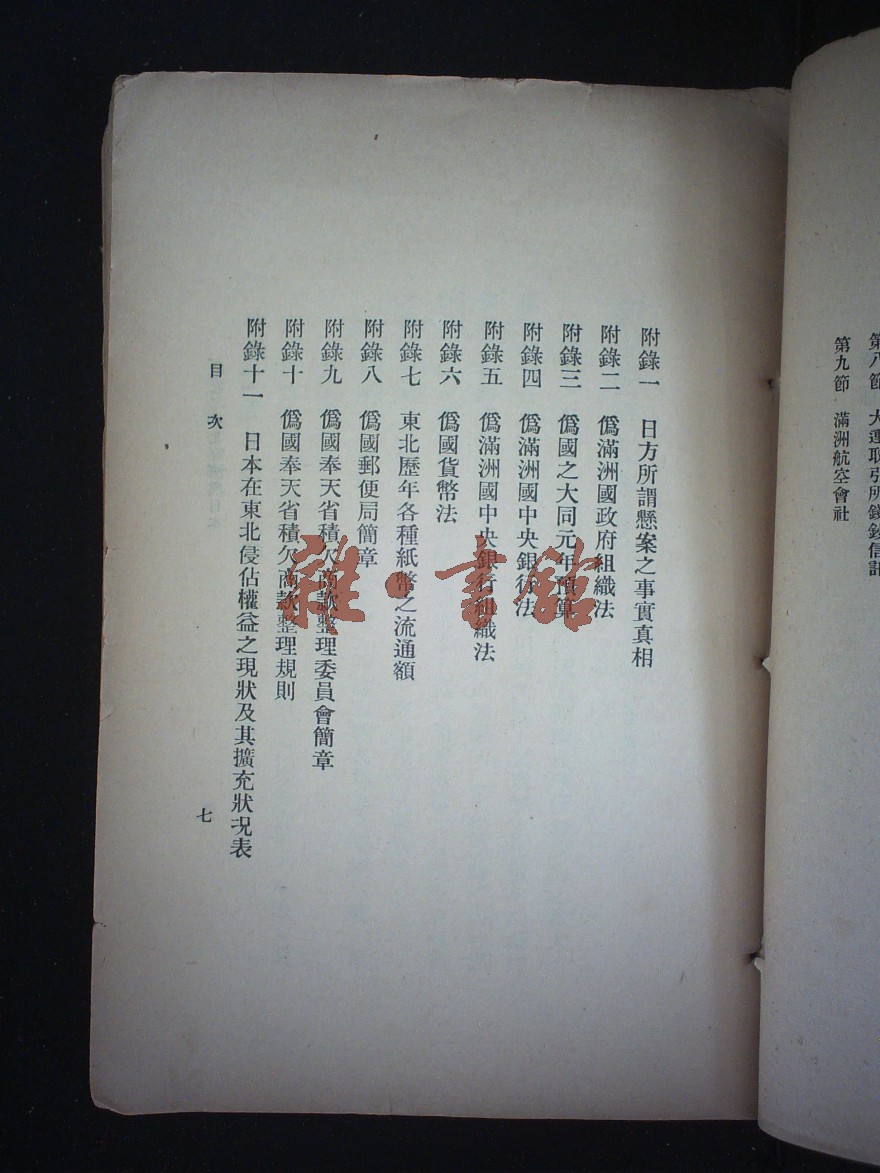 第八節　大連取引所錢鈔信託
第九節　滿洲航空會社
附錄一　日方所謂懸案之事實真相
附錄二　僞滿洲國政府組織法
附錄三　僞國之大同元年預算
附錄四　僞滿洲國中央銀行法
附錄五　僞滿洲國中央銀行組織法
附錄六　僞國貨幣法
附錄七　東北歷年各種紙幣之流通額
附錄八　僞國郵便局簡章
附錄九　僞國奉天省積欠商款整理委員會簡章
附錄十　僞國奉天省積欠商款整理規則
附錄十一　日本在東北侵佔權益之現狀及其擴充狀況表
目次
七
雜·書館